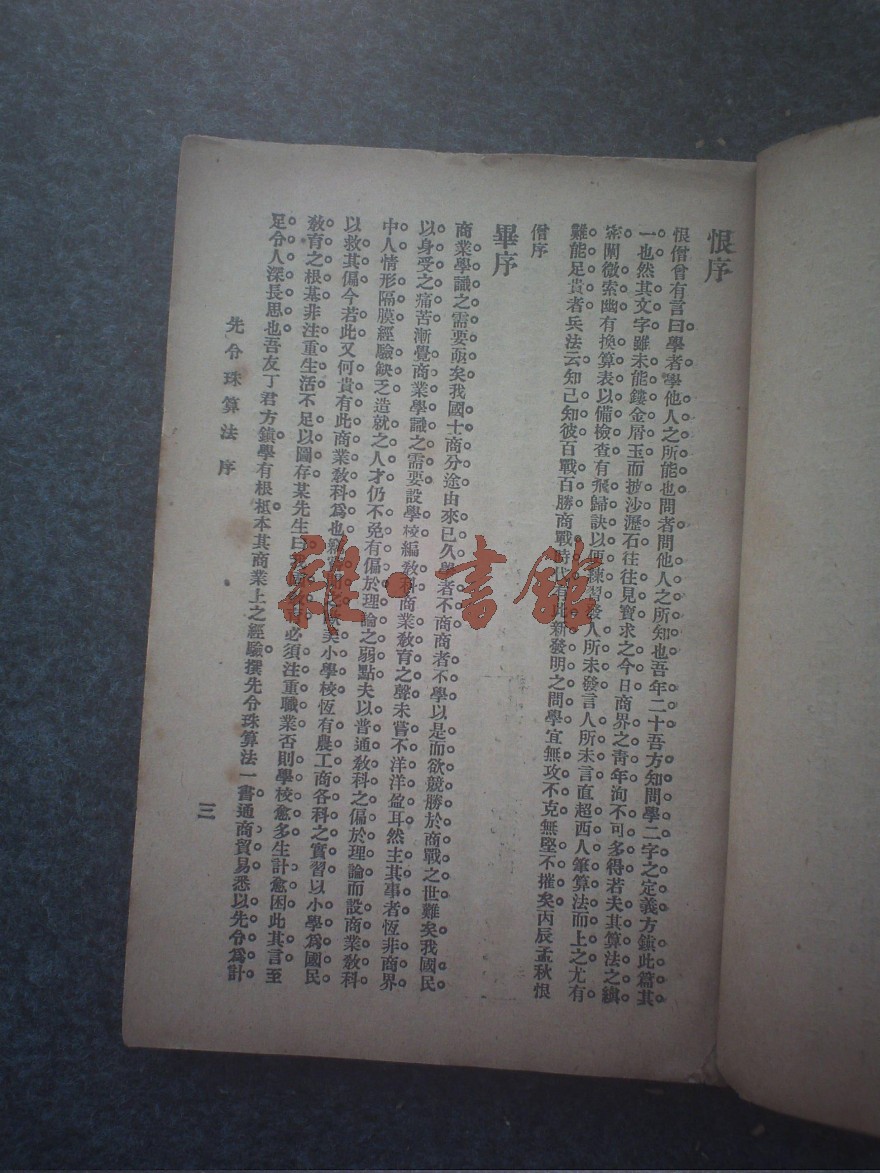 恨序
恨僧曾有言曰學者學他人之所能也問者問他人之所知也吾年二十吾方知問學二字之定義方鎮此篇其
一也然其文字雖未能鏤金屑玉而披沙瀝石往往見寶求之今日商界之靑年洵不可多得若夫其算法之縝
密闡微索幽有換算表以備檢查有飛歸訣以便練習發人所未發言人所未言直超西人筆算法而上之尤有
難能足貴者兵法云知己知彼百戰百勝商戰時代有此新發明之問學宜無攻不克無堅不摧矣丙辰孟秋恨
僧序
畢序
商業學識之需要亟矣我國士商分途由來已久學者不商商者不學以是而欲競勝於商戰之世難矣我國民
以身受之痛苦漸覺商業學識之需要設學校編敎科商業敎育之聲未嘗不洋洋盈耳然主其事者恆非商界
中人情形隔膜經驗缺乏造就之人才仍不免有偏於理論之弱點夫以普通敎科之偏於理論而設商業敎科
以救其偏今若此又何貴有此商業敎科爲也美小學校恆有農工商各科之實習以小學爲國民
敎育之根基非注重生活不足以圖存某先生曰必須注重職業否則學校愈多生計愈困此其言至
足令人深長思也吾友丁君方鎮學有根柢本其商業上之經驗撰先令珠算法一書通商貿易悉以先令爲計
先令珠算法 序
三
雜·書館